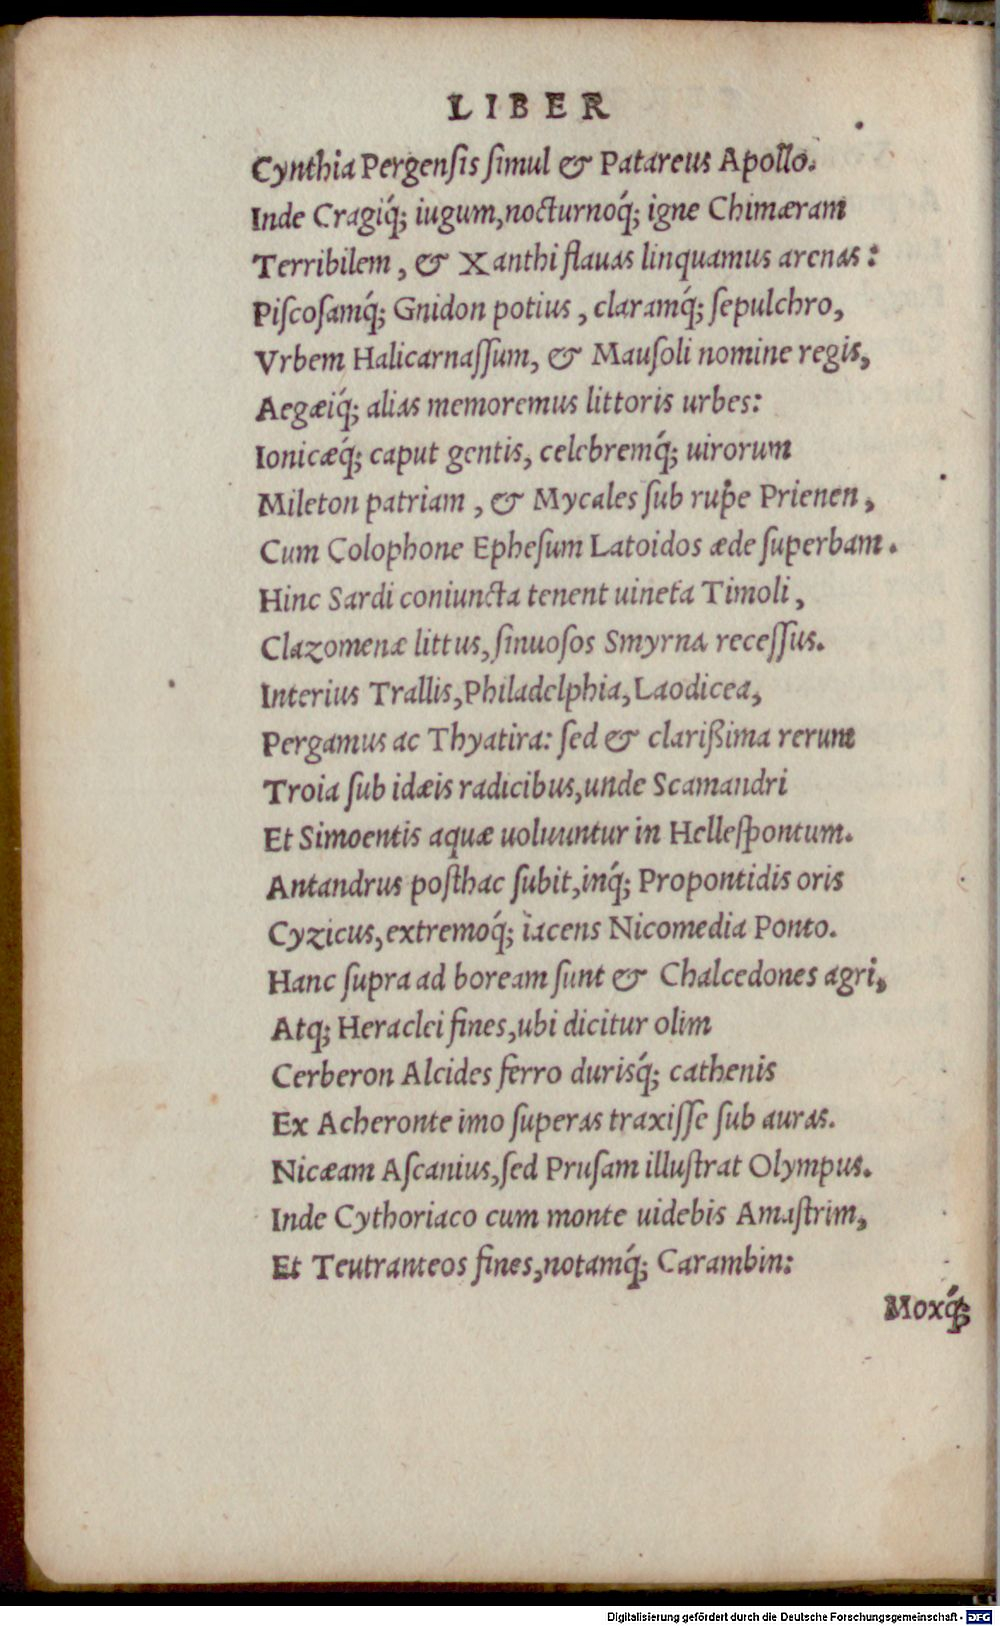 LIBER
Cynthia Pergenſis ſimul & Patareus Apollo.
Inde Cragiq́; iugum, nocturnoq́; igne Chimæram
Terribilem, & Xanthi flauas linquamus arenas:
Piſcoſamq́; Gnidon potius, claramq́; ſepulchro,
Vrbem Halicarnaſſum, & Mauſoli nomine regis,
Aegæiq́; alias memoremus littoris urbes:
Ionicæq́; caput gentis, celebremq́; uirorum
Mileton patriam, & Mycales ſub rupe Prienen,
Cum Colophone Epheſum Latoidos æde ſuperbam.
Hinc Sardi coniuncta tenent uineta Timoli,
Clazomenæ littus, ſinuoſos Smyrna receſſus.
Interius Trallis, Philadelphia, Laodicea,
Pergamus ac Thyatira: ſed & clarißima rerum
Troia ſub idæis radicibus, unde Scamandri
Et Simoentis aquæ uoluuntur in Helleſpontum.
Antandrus poſthac ſubit, inq́; Propontidis oris
Cyzicus, extremoq́; iacens Nicomedia Ponto.
Hanc ſupra ad boream ſunt & Chalcedones agri,
Atq; Heraclei fines, ubi dicitur olim
Cerberon Alcides ferro durisq́; cathenis
Ex Acheronte imo ſuperas traxiſſe ſub auras.
Nicæam Aſcanius, ſed Pruſam illuſtrat Olympus.
Inde Cythoriaco cum monte uidebis Amaſtrim,
Et Teutranteos fines, notamq́; Carambin:
Moxq́;
Digitalisierung gefördert durch die Deutsche Forschungsgemeinschaft - DFG